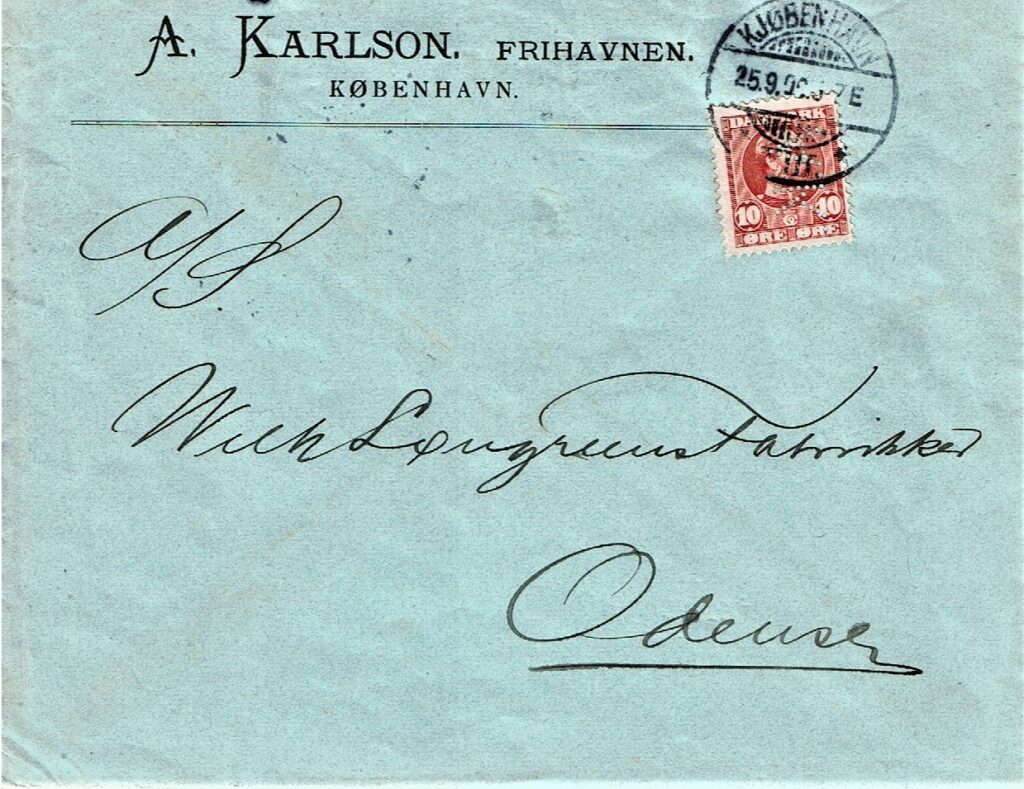 A. KARLSON. FRIHAVNEN.
KØBENHAVN.
KJØBENHAVN
25.9.06. 7 E
DANMARK
10 10
ØRE ØRE
A/S.
Wilh Langreens Fabrikker
Odense